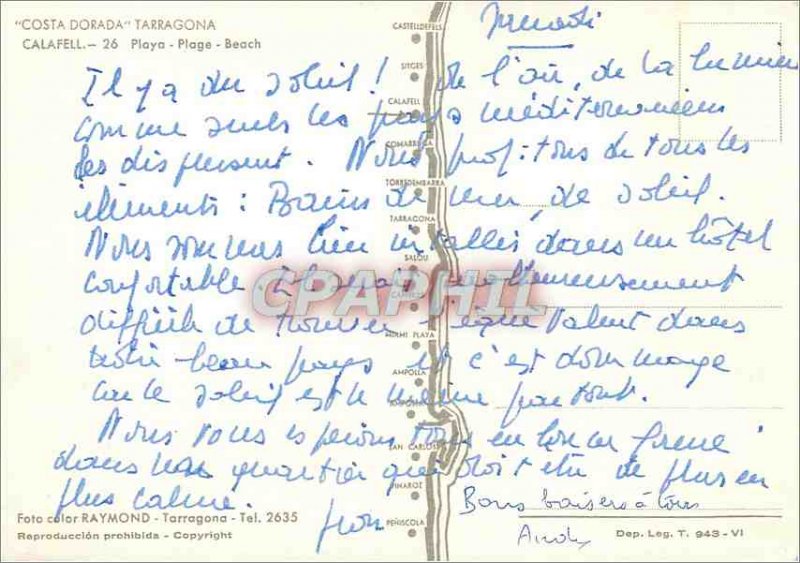 "COSTA DORADA" TARRAGONA
CALAFELL.- 26 Playa - Plage - Beach
CASTELLDEFELS
SITGES
CALAFELL
COMARRUGA
TORREDEMBARRA
TARRAGONA
SALOU
CAMBRILS
MIAMI PLAYA
AMPOLLA
AMPOSTA
SAN CARLOS
VINAROZ
PEÑISCOLA
Il y a du soleil ! de l'air, de la lumière
comme seuls les pays méditerranéens
les dispensent. Nous profitons de tous les
éléments : Bains de mer, de soleil.
Nous sommes bien installés dans un hôtel
confortable. malheureusement
difficile de trouver équivalent dans
notre beau pays et c'est dommage
car le soleil est le même partout.
Nous vous espérons tous en bonne forme
dans quartier qui doit être de plus en
plus calme.
Bons baisers à tous
Andy
CPARPHIL
Foto color RAYMOND - Tarragona - Tel. 2635
Reproducción prohibida - Copyright
Dep. Leg. T. 943 - VI